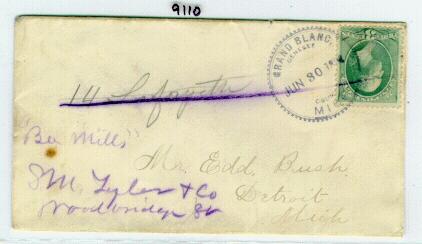 9110
GRAND BLANC
GENESEE
JUN 30
MICH
14 Lafayette
"Bee Mills"
S.M. Tyler & Co
Woodbridge St
Mr. Edd. Bush.
Detroit
Mich